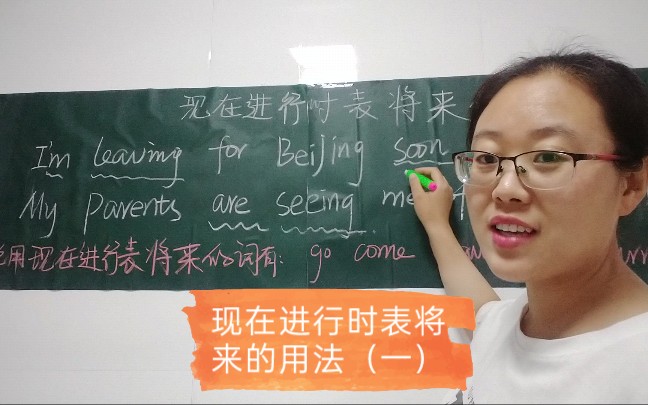 现在进行时表将来
I'm leaving for Beijing soon
My parents are seeing me
用现在进行表将来的词有: go come
现在进行时表将
来的用法（一）